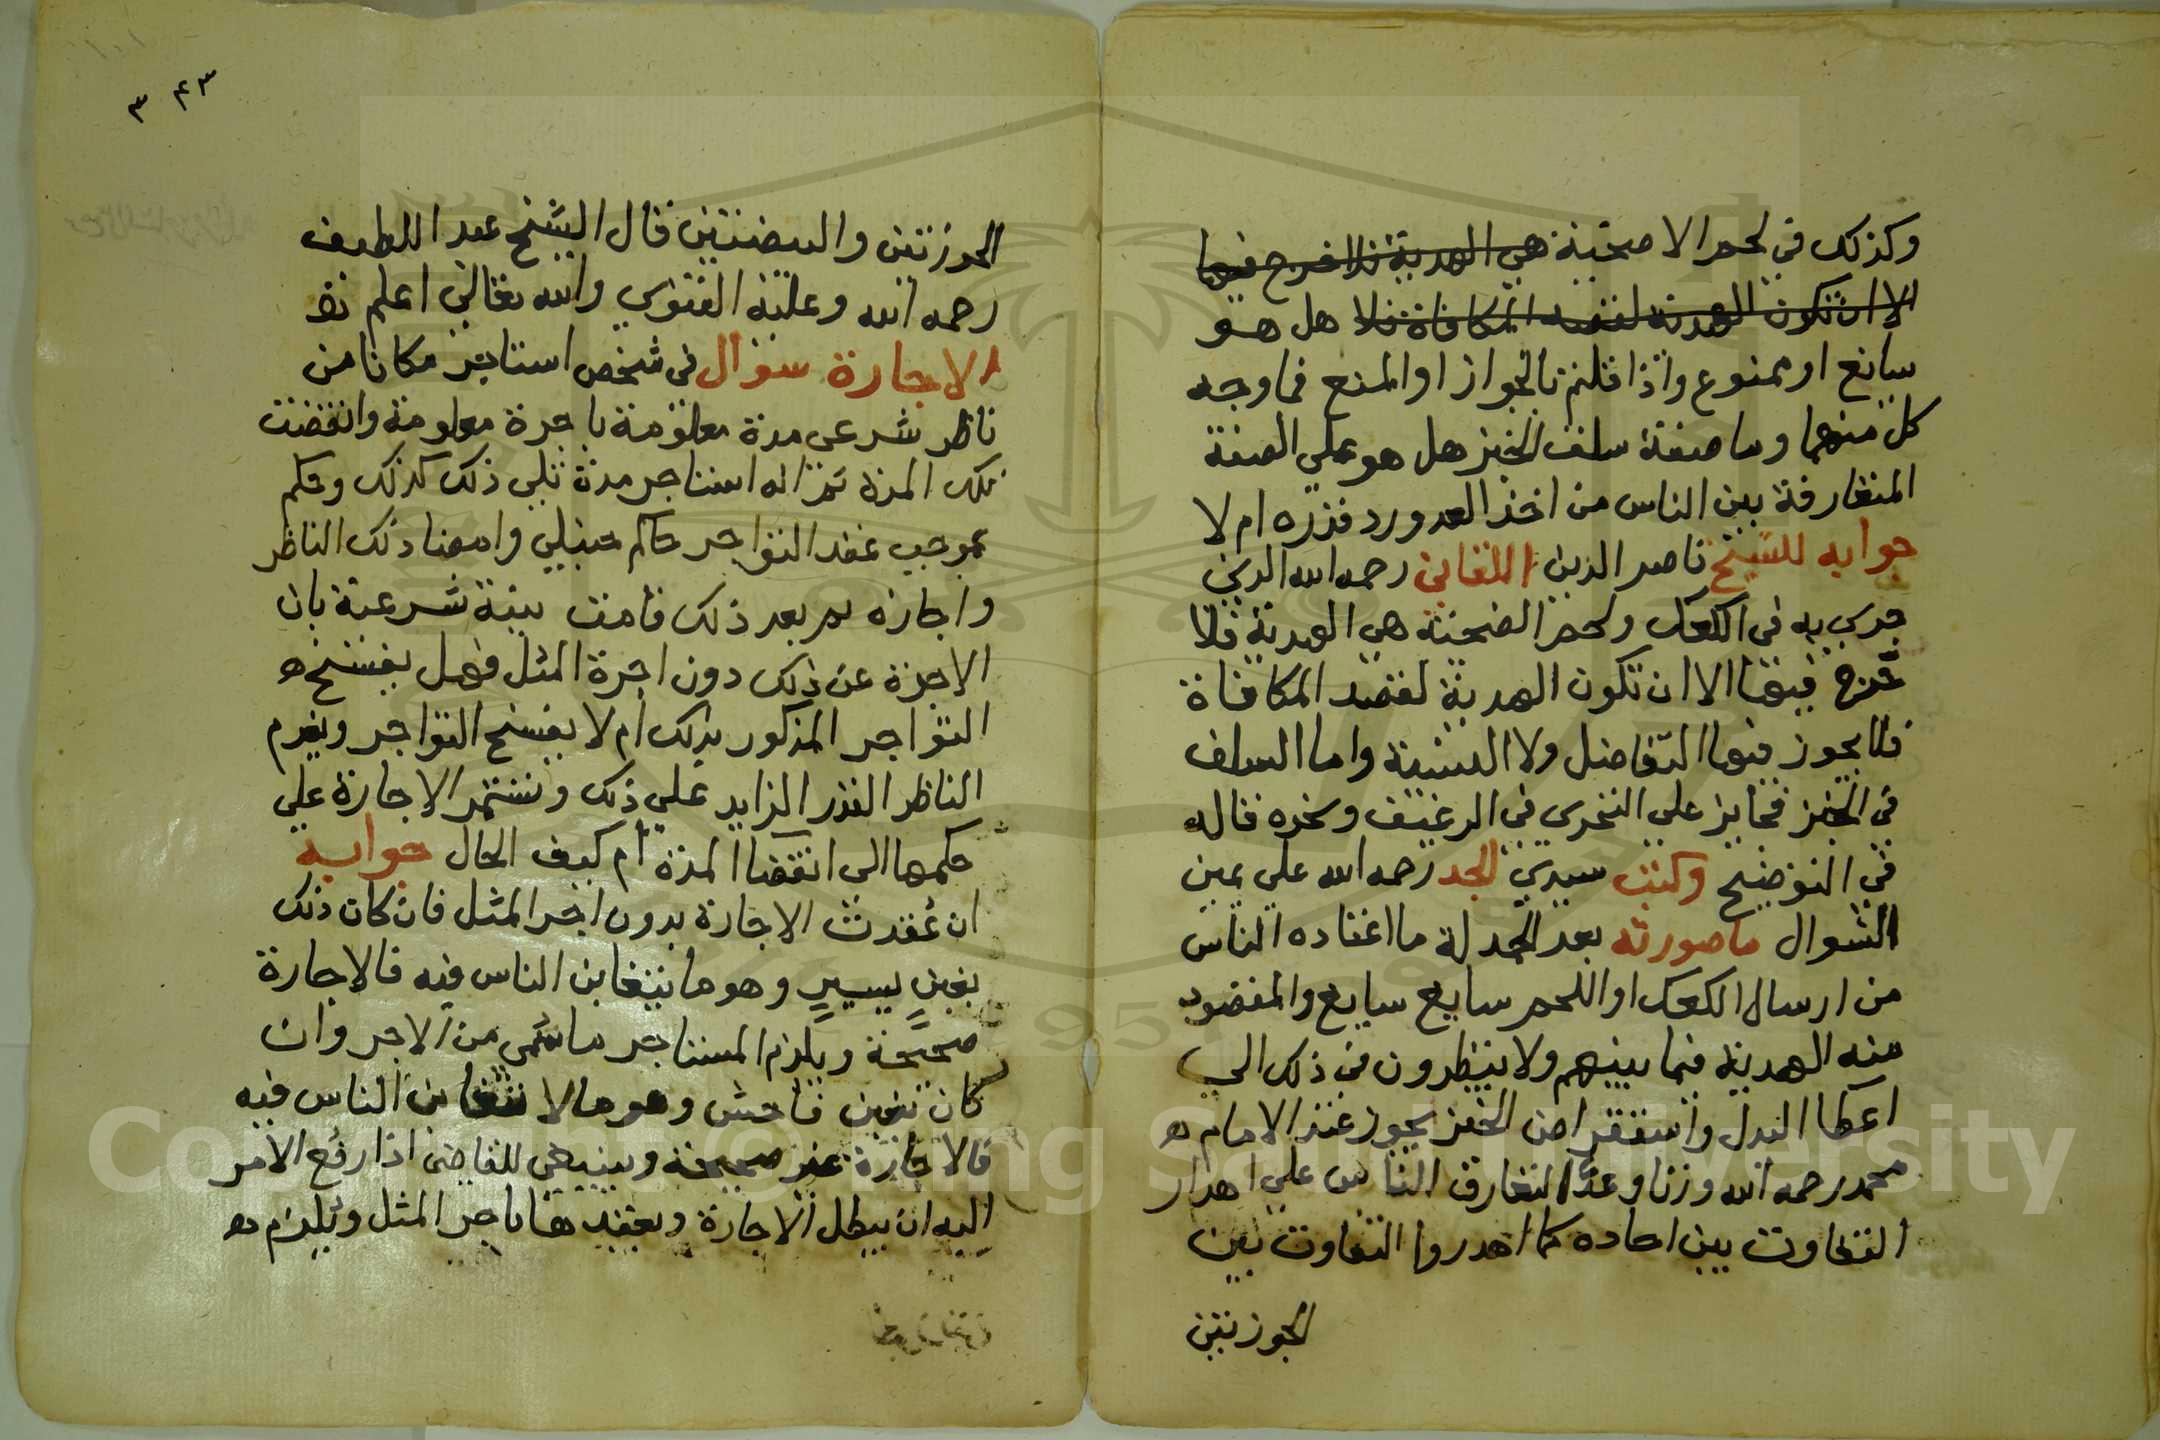 وكذلك في لحم الاضحية هي الهدية فلا فرج فيها
الا ان تكون الهدية لقصد المكافاة فلا هل هو
سايغ او ممنوع واذا قلتم بالجواز او المنع فما وجه
كل منهما وما صفة سلف الخبز هل هو علي الصفة
المتعارفة بين الناس من اخذ العدد ورد قدره ام لا
جوابه للشيخ ناصر الدين اللقاني رحمه الله الذي
جري به في الكعك ولحم الضحية هي الهدية فلا
حرج فيها الا ان تكون الهدية لقصد المكافاة
فلا يجوز فيها التفاضل ولا النسيئة واما السلف
في الخبز فجايز علي التحري في الرغيف ونحوه قاله
في التوضيح وكتب سيدي الجد رحمه الله علي يمين
السوال ما صورته بعد الحمد لة ما اعتاده الناس
من ارسال الكعك او اللحم سايغ سايع والمقصود
منه الهدية فيما بينهم ولا ينظرون في ذلك الي
اعطا البدل واستقراض الخبز يجوز عند الامام
محمد رحمه الله وزنا وعدا لتعارف الناس علي اهدار
التفاوت بين احاده كما اهدروا التفاوت بين
الجوزتين
٣٤٣
الجوزتين والبيضتين قال الشيخ عبد اللطيف
رحمه الله وعليه الفتوي والله تعالي اعلم
الاجارة سوال في شخص استاجر مكانا من
ناظر شرعي مدة معلومة باجرة معلومة وانقضت
تلك المدة ثم انه استاجر مدة تلي ذلك كذلك وحكم
بموجب عقد التواجر حاكم حنبلي وامضا ذلك الناظر
واجازه ثم بعد ذلك قامت بينة شرعية بان
الاجرة عن ذلك دون اجرة المثل فهل يفسخ
التواجر المذكور بذلك ام لا يفسخ التواجر ويغرم
الناظر القدر الزايد علي ذلك وتستمر الاجارة علي
حكمها الى انقضا المدة ام كيف الحال جوابه
ان عُقدت الاجارة بدون اجر المثل فان كان ذلك
بغبنٍ يسيرٍ وهو ما يتغابن الناس فيه فالاجارة
صحيحة ويلزم المستاجر ما سُمي من الاجر وان
كان بغبن فاحش وهو ما لا يتغابن الناس فيه
فالاجارة غير صحيحة وينبغي للقاضي اذا رفع الامر
اليه ان يبطل الاجارة ويعقدها باجر المثل ويلزم